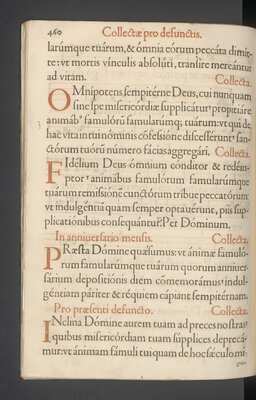 460 Collectæ pro defunctis.
larúmque tuárum, & ómnia eórum peccáta dimít-
te: vt mortis vínculis absolúti, transíre mereántur
ad vitam. Collecta.
OMnípotens sempitérne Deus, cui nunquam
sine spe misericórdiæ supplicátur: propitiáre
animábꝰ famulórū famularúmq; tuárum: vt qui de
hac vita in tui nóminis cōfessióne discessérunt: san-
ctórum tuórū número fácias aggregári. Collecta.
FIdélium Deus ómnium cónditor & redém-
ptor: animábus famulórum famularúmque
tuárum remissiónē cunctórum tríbue peccatórum:
vt indulgéntiā quam semper optavérunt, piis sup-
plicatiónibus consequántur. Per Dóminum.
In anniuersario mensis. Collecta.
PRæsta Dómine quæsumus: vt ánimæ famuló-
rum famularúmque tuárum quorum anniuer-
sárium depositiónis diem commemorámus: indul-
géntiam páriter & réquiem cápiant sempitérnam.
Pro præsenti defuncto. Collecta.
INclína Dómine aurem tuam ad preces nostras:
quibus misericórdiam tuam súpplices deprecá-
mur: vt ánimam fámuli tui quam de hoc sǽculo mi-